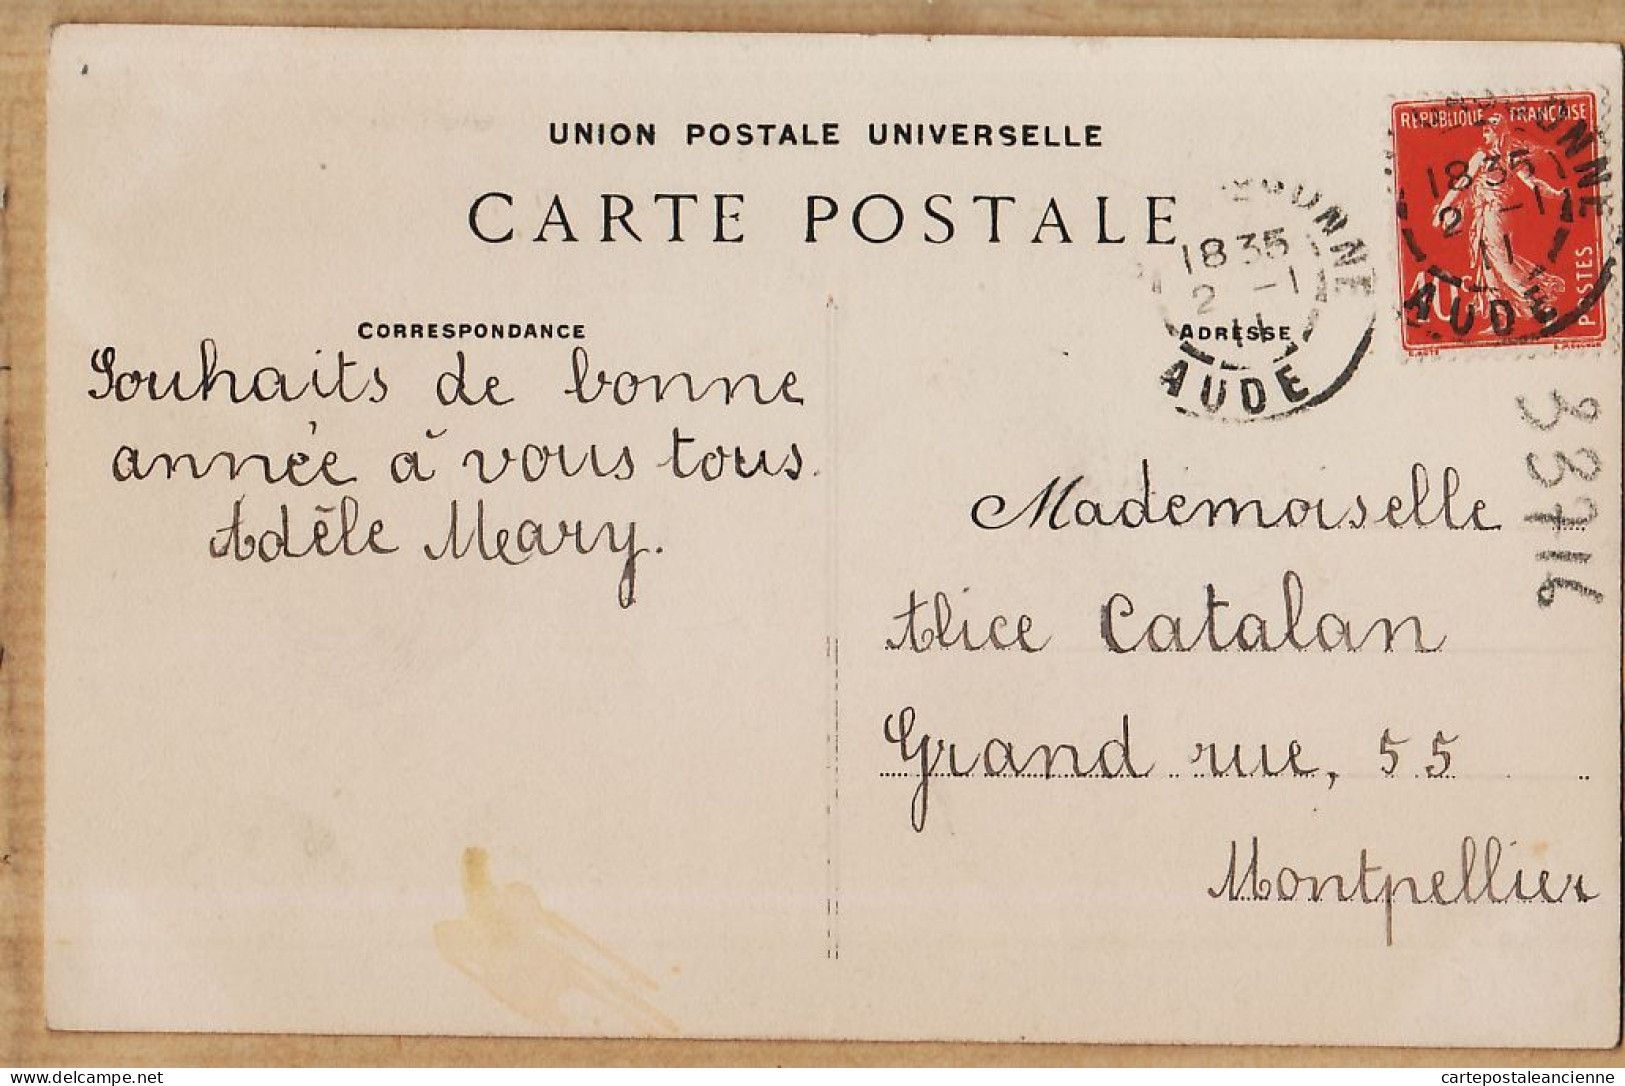 UNION POSTALE UNIVERSELLE
CARTE POSTALE
CORRESPONDANCE
ADRESSE
Souhaits de bonne
année à vous tous.
Adèle Meary.
Mademoiselle
Alice Catalan
Grand rue, 55
Montpellier
REPUBLIQUE FRANÇAISE
POSTES
10c
18 35
2 -1
11
AUDE
18 35
2 -1
11
AUDE
33716
Delcampe.net
cartepostaleancienne